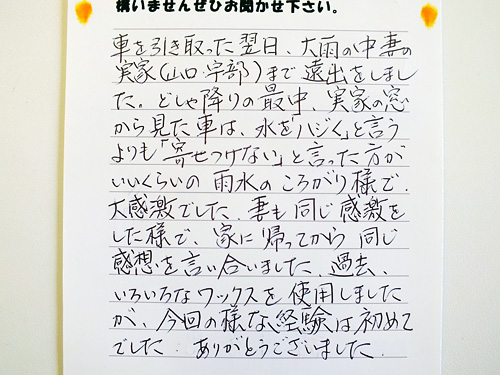 構いませんぜひお聞かせ下さい。
車を引き取った翌日、大雨の中妻の
実家(山口・宇部)まで遠出をしまし
た。どしゃ降りの最中、実家の窓
から見た車は、水を「ハジく」と言う
よりも「寄せつけない」と言った方が
いいくらいの雨水のころがり様で、
大感激でした。妻も同じ感激を
した様で、家に帰ってから同じ
感想を言い合いました。過去、
いろいろなワックスを使用しました
が、今回の様な経験は初めて
でした。ありがとうございました。